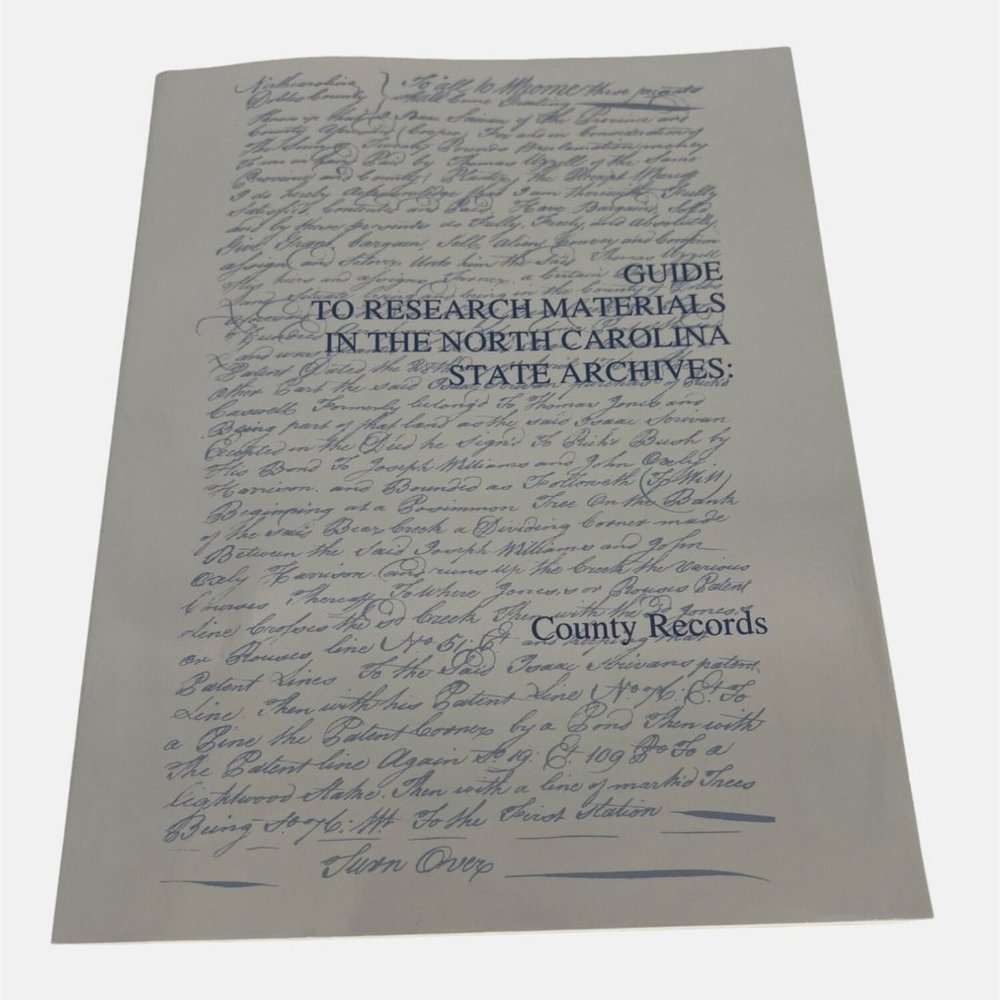 Northcarolina
Dobbs County } To all to Whome these presents
Shall Come Greeting
Know ye that I Isaac Scrivan of the Province and
County Aforesaid (Cooper) For and in Consideration of
The Sum of Twenty Pounds Proclamation money
To me in hand Paid by Thomas Uzzell of the Same
Province and County Planter The Receipt Whereof
I do hereby Acknowledge that I am therewith Fully
Satisfied, Contented and Paid, Have Bargain, Sold
and by these presents do Fully, Freely, and Absolutely,
Give, Grant, bargain, Sell, Alien, Convey and Confirm
Unto him the Said Thomas Uzzell
His heirs and assigns Forever, a Certain
GUIDE
TO RESEARCH MATERIALS
IN THE NORTH CAROLINA
STATE ARCHIVES:
Patent Dated the
other Part the said
Caswell Formerly belong'd To Thomas Jones and
Being part of that land as the said Isaac Scrivan
Excepted in the Deed he sign'd To Rich'd Bush by
His Bond To Joseph Williams and John Oxly
Harrison. and Bounded as Followeth (To Witt)
Beginning at a Persimmon Tree On the Bank
of the said Bear Creek a Dividing Corner made
Between the Said Joseph Williams and John
Oxly Harrison. and runs up the Creek the Various
Courses Thereof To Where Jones,s or Rouses Patent
Line Crosses the s'd Creek Then with the s'd Jones,s
or Rouses, line No 51: Et and
County Records
Patent Lines To the Said Isaac Scrivans patent
Line. Then with his Patent Line No 76. Et. To
a Pine the Patent Corner by a Pond Then with
The Patent line Again So 19. Et. 109 Po To a
lightwood Stake. Then with a line of markid Trees
Being So 76: Wt To the First Station
Turn Over